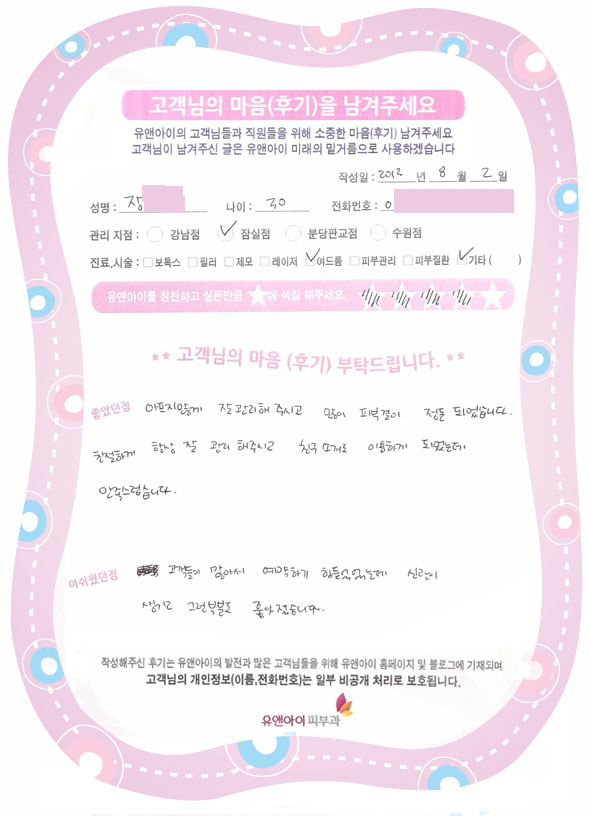 고객님의 마음(후기)을 남겨주세요
유앤아이의 고객님들과 직원들을 위해 소중한 마음(후기) 남겨주세요
고객님이 남겨주신 글은 유앤아이 미래의 밑거름으로 사용하겠습니다
작성일 : 2012 년 8 월 2 일
성명 : 장 나이 : 30 전화번호 : 0
관리 지점 : 강남점 잠실점 분당판교점 수원점
진료,시술 : 보톡스 필러 제모 레이저 여드름 피부관리 피부질환 기타 ( )
유앤아이를 칭찬하고 싶은만큼 에 색칠 해주세요.
** 고객님의 마음 (후기) 부탁드립니다. **
좋았던점 아프지않게 잘 관리해 주시고 많이 피부결이 정돈 되었습니다.
친절하게 항상 잘 관리 해주시고 친구 소개로 이용하게 되었는데
만족스럽습니다.
아쉬웠던점 고객들이 많아서 예약하기 힘들었었는데 신관이
생기고 그런부분도 좋아졌습니다.
작성해주신 후기는 유앤아이의 발전과 많은 고객님들을 위해 유앤아이 홈페이지 및 블로그에 기재되며
고객님의 개인정보(이름,전화번호)는 일부 비공개 처리로 보호됩니다.
유앤아이피부과